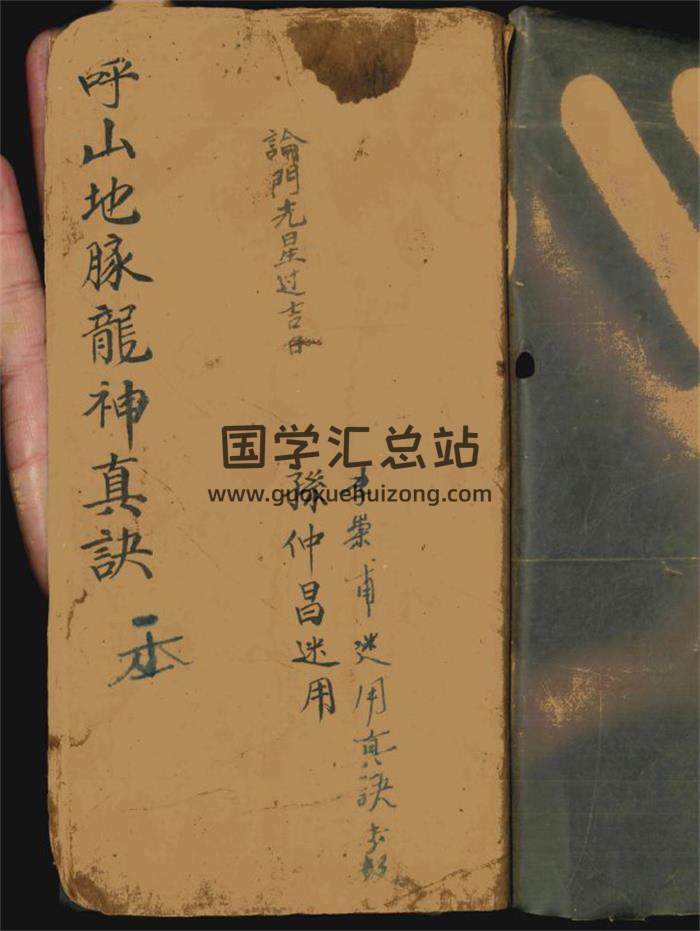 呼山地脉龍神真訣
一本
論門光星过吉日
孫仲昌迷用
用真訣
国学汇总站
www.guoxuehuizong.com